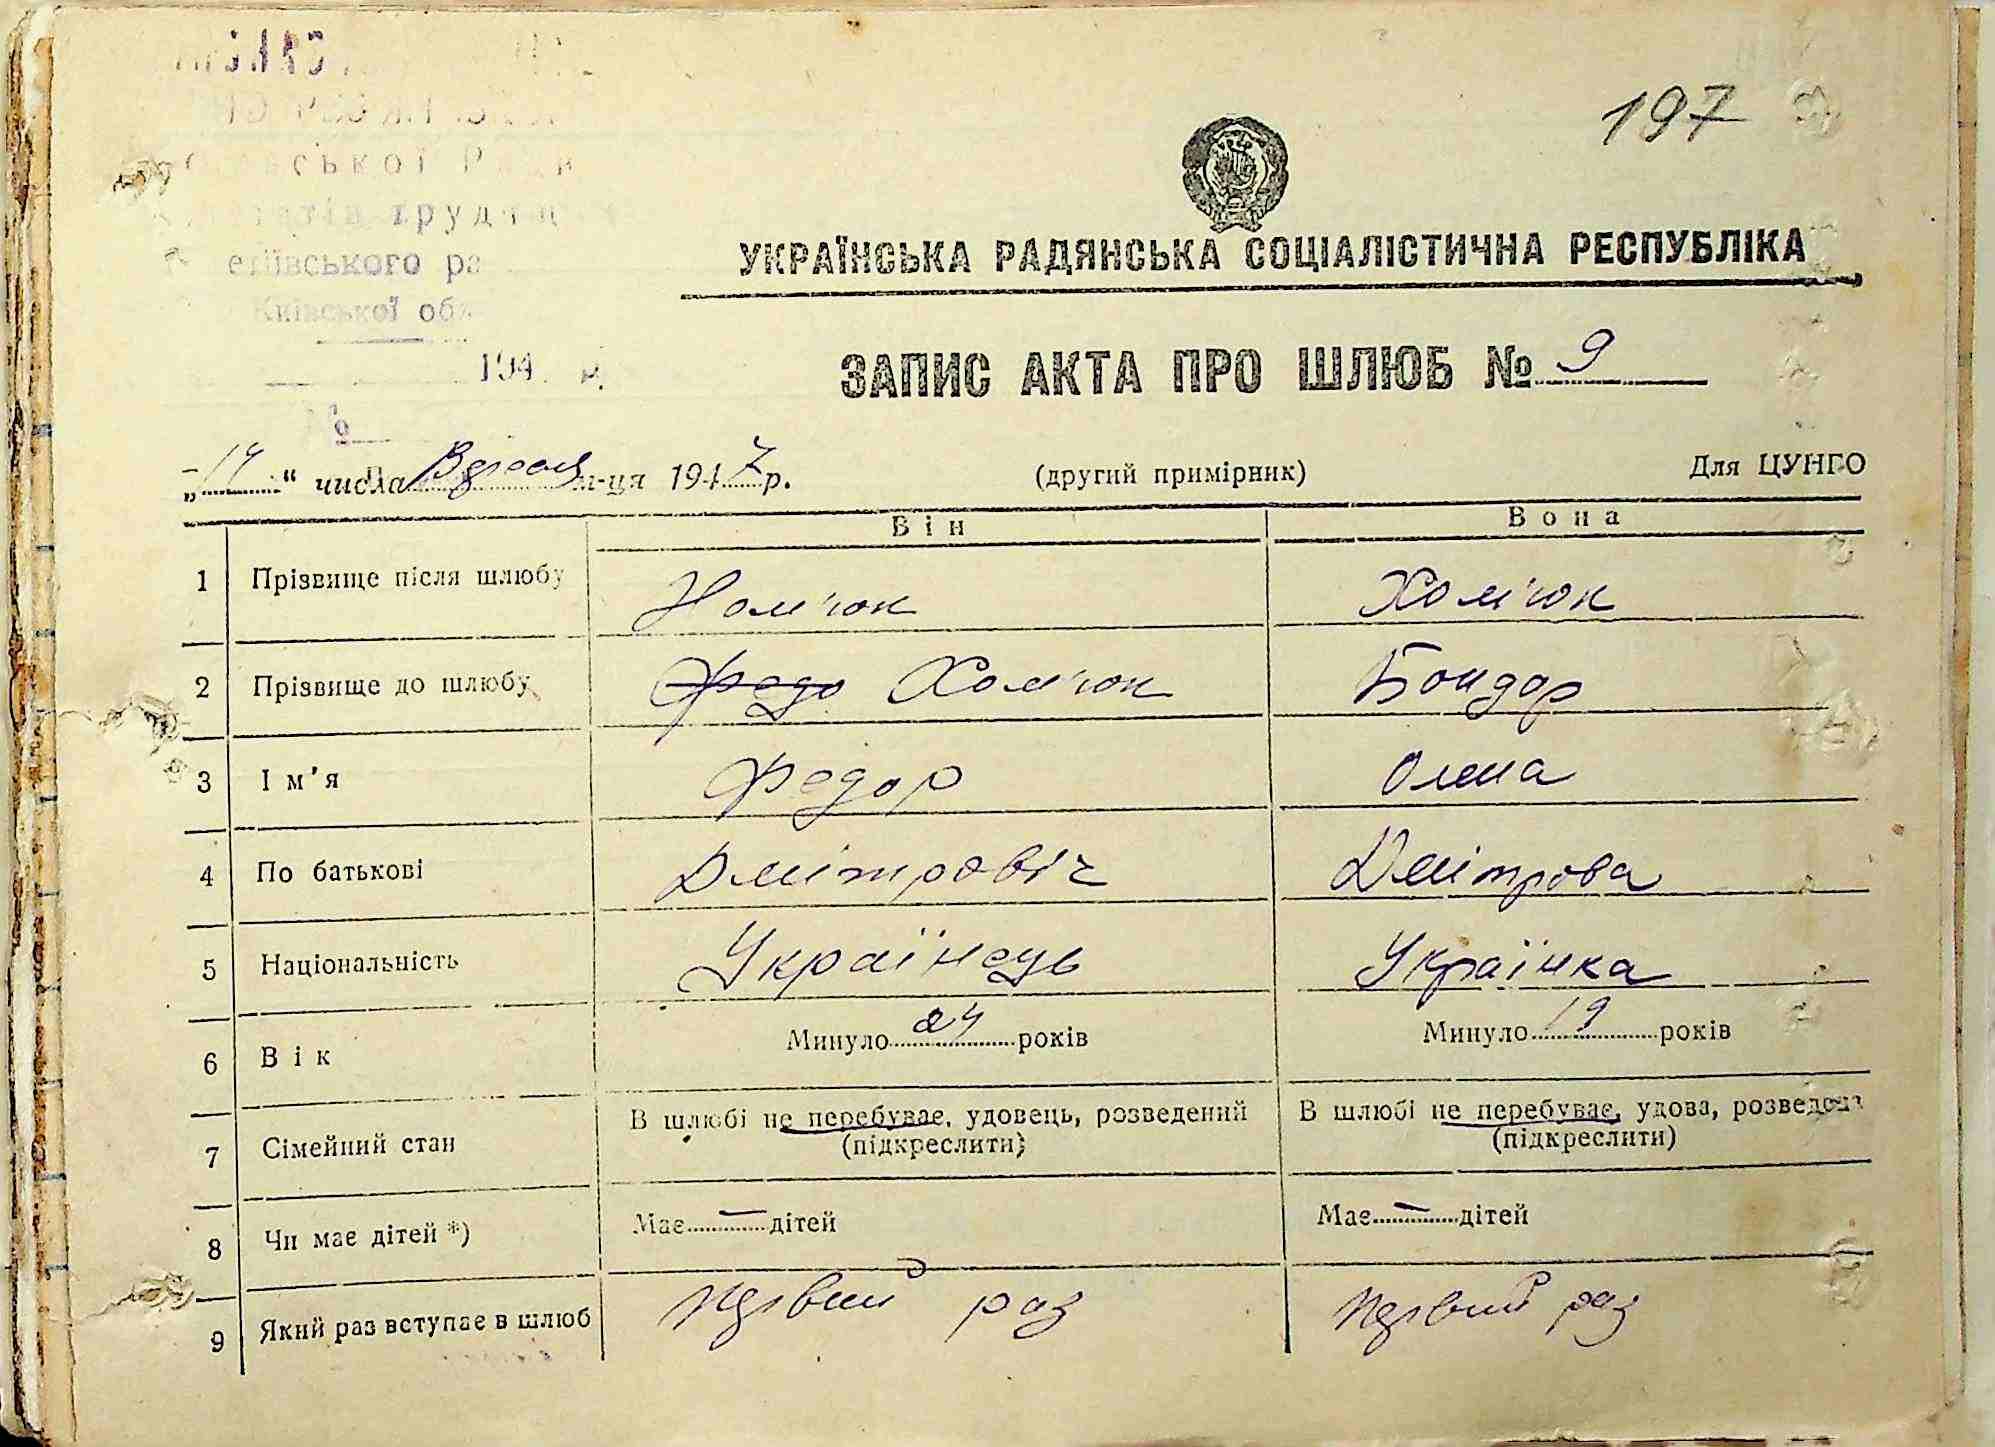 197
УКРАЇНСЬКА РАДЯНСЬКА СОЦІАЛІСТИЧНА РЕСПУБЛІКА
Київської
194
№
ЗАПИС АКТА ПРО ШЛЮБ № 9
„14“ числа Вересня м-ця 1947 р. (другий примірник) Для ЦУНГО
Він Вона
1 Прізвище після шлюбу Хом'юк Хом'юк
2 Прізвище до шлюбу Федо Хом'юк Бондар
3 Ім'я Федор Олена
4 По батькові Дмітровіч Дмітрова
5 Національність Українець Українка
6 Вік Минуло 24 років Минуло 19 років
7 Сімейний стан В шлюбі не перебуває, удовець, розведений В шлюбі не перебуває, удова, розведена
(підкреслити) (підкреслити)
8 Чи має дітей *) Має — дітей Має — дітей
9 Який раз вступає в шлюб Первий раз Первий раз